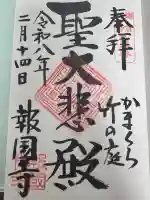 奉拝
かまくら
竹の庭
聖大悲殿
令和八年
二月十四日
報国寺